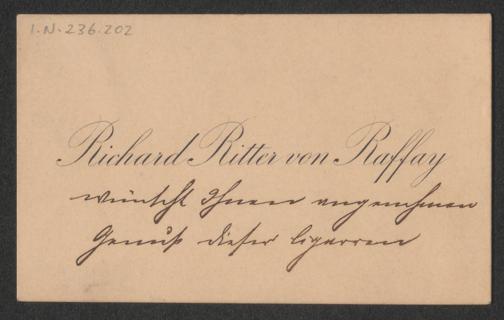 I.N. 236.202
Richard Ritter von Raffay
wünscht Ihnen angenehmen
Genuß dieser Cigarren